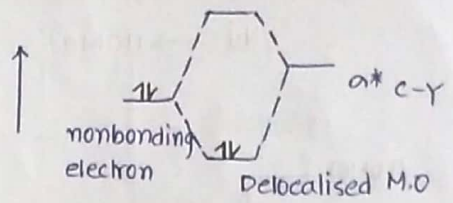 a* C-Y
nonbonding
electron
Delocalised M.O